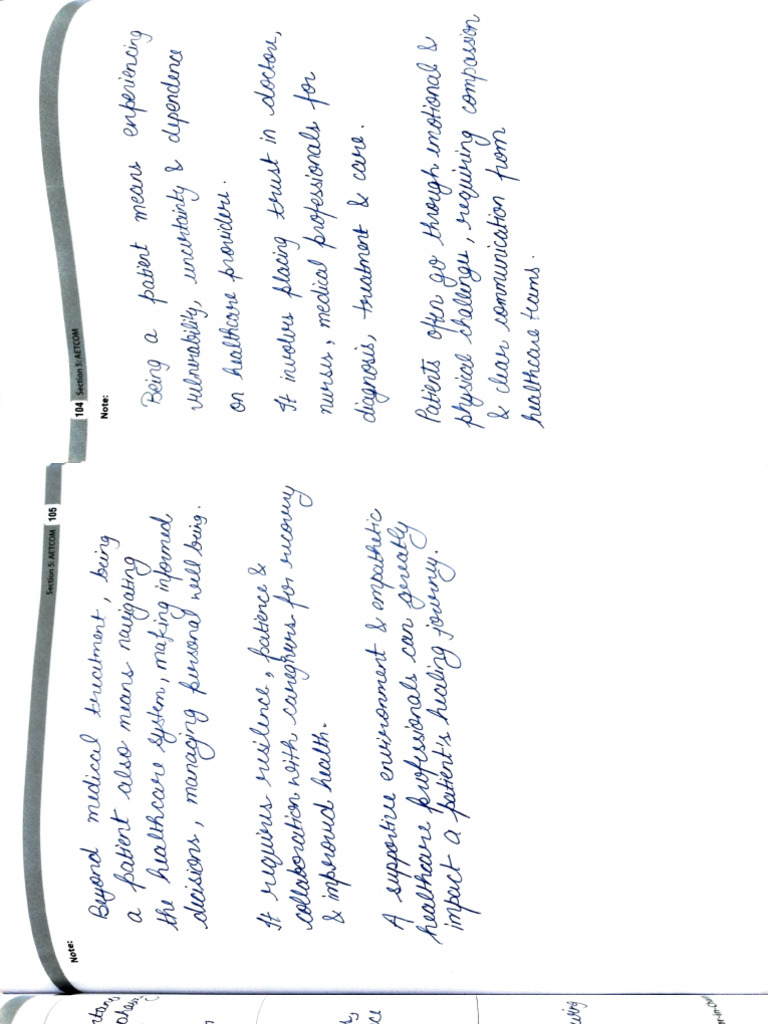 104 Section 5: AETCOM
Note:
Being a patient means experiencing
vulnerability, uncertainty & dependence
on healthcare providers.
It involves placing trust in doctors,
nurses, medical professionals for
diagnosis, treatment & care.
Patients often go through emotional &
physical challenges, requiring compassion
& clear communication from
healthcare teams.
Section 5: AETCOM 105
Note:
Beyond medical treatment, being
a patient also means navigating
the healthcare system, making informed
decisions, managing personal well being.
It requires resilence, patience &
collaboration with caregivers for recovery
& improved health.
A supportive environment & empathetic
healthcare professionals can greatly
impact a patient's healing journey.